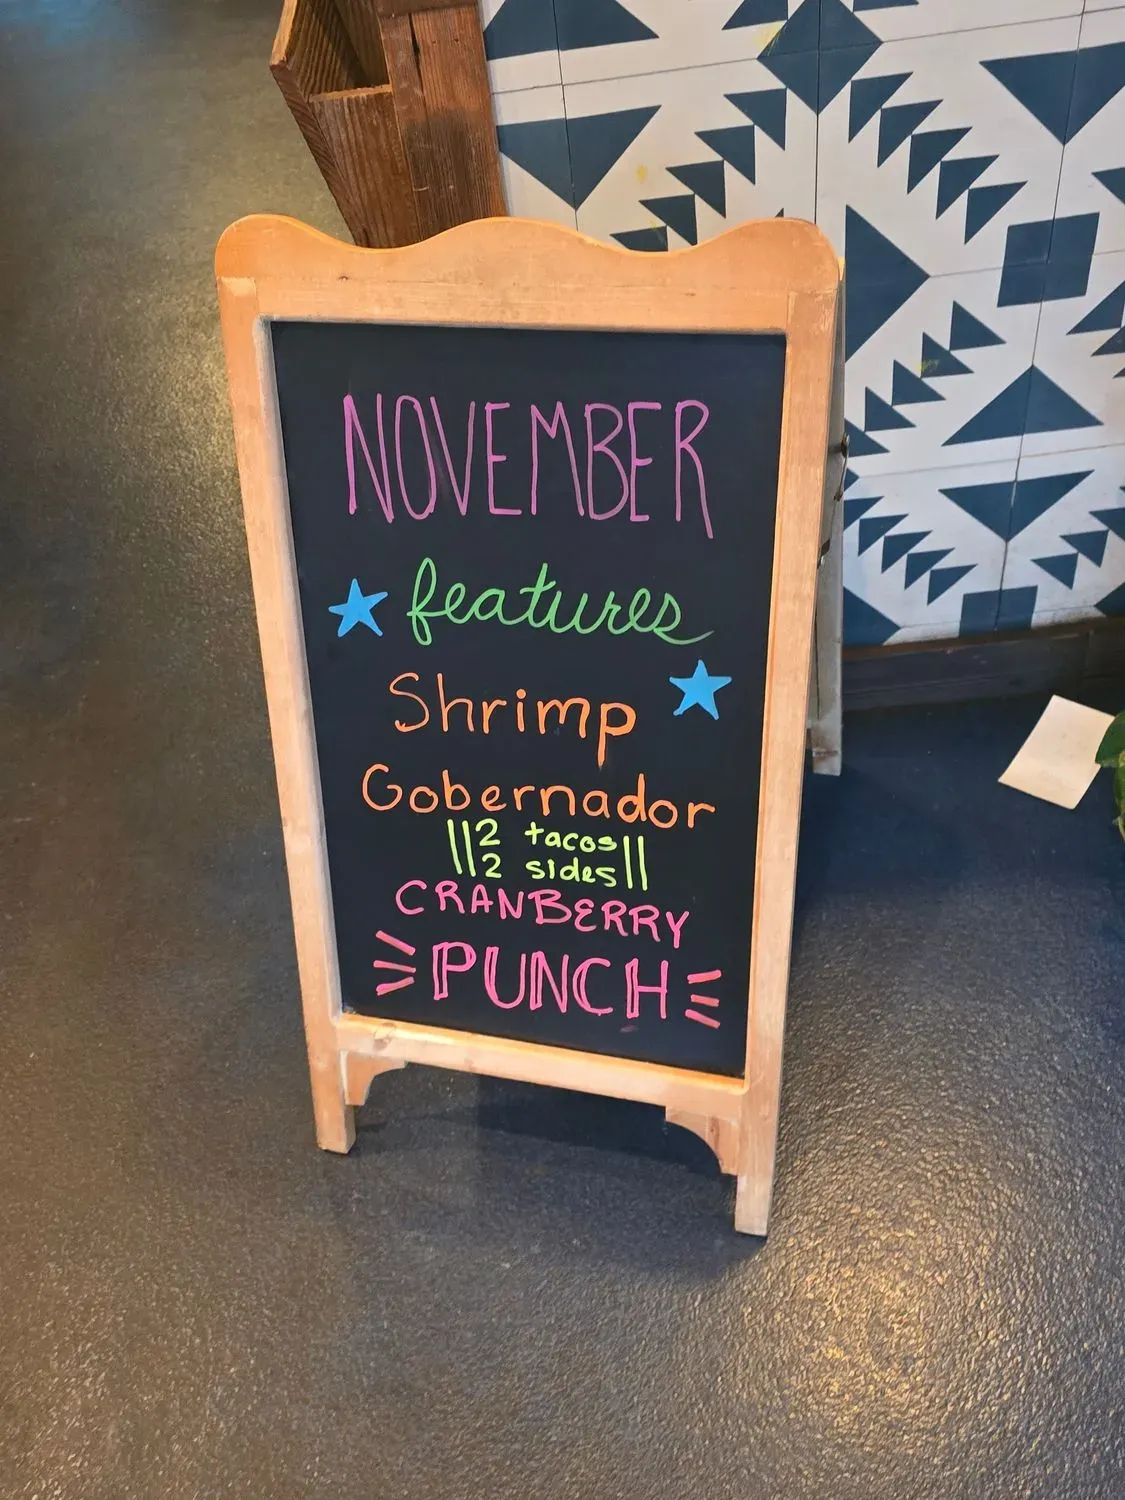 NOVEMBER
features
Shrimp
Gobernador
2 tacos
2 sides
CRANBERRY
PUNCH